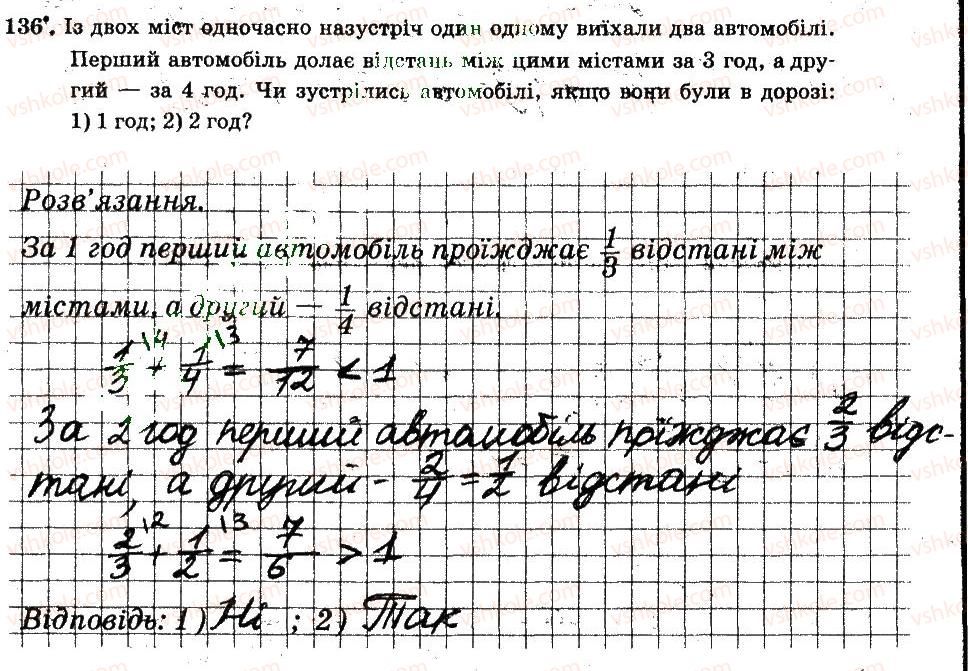 136°. Із двох міст одночасно назустріч один одному виїхали два автомобілі.
Перший автомобіль долає відстань між цими містами за 3 год, а дру-
гий — за 4 год. Чи зустрілись автомобілі, якщо вони були в дорозі:
1) 1 год; 2) 2 год?
Розв'язання.
За 1 год перший автомобіль проїжджає 1/3 відстані між
містами, а другий — 1/4 відстані.
1/3 \4 + 1/4 \3 = 7/12 < 1
За 2 год перший автомобіль проїжджає 2/3 відс-
тані, а другий - 2/4 = 1/2 відстані
2/3 \2 + 1/2 \3 = 7/6 > 1
Відповідь: 1) Ні ; 2) Так